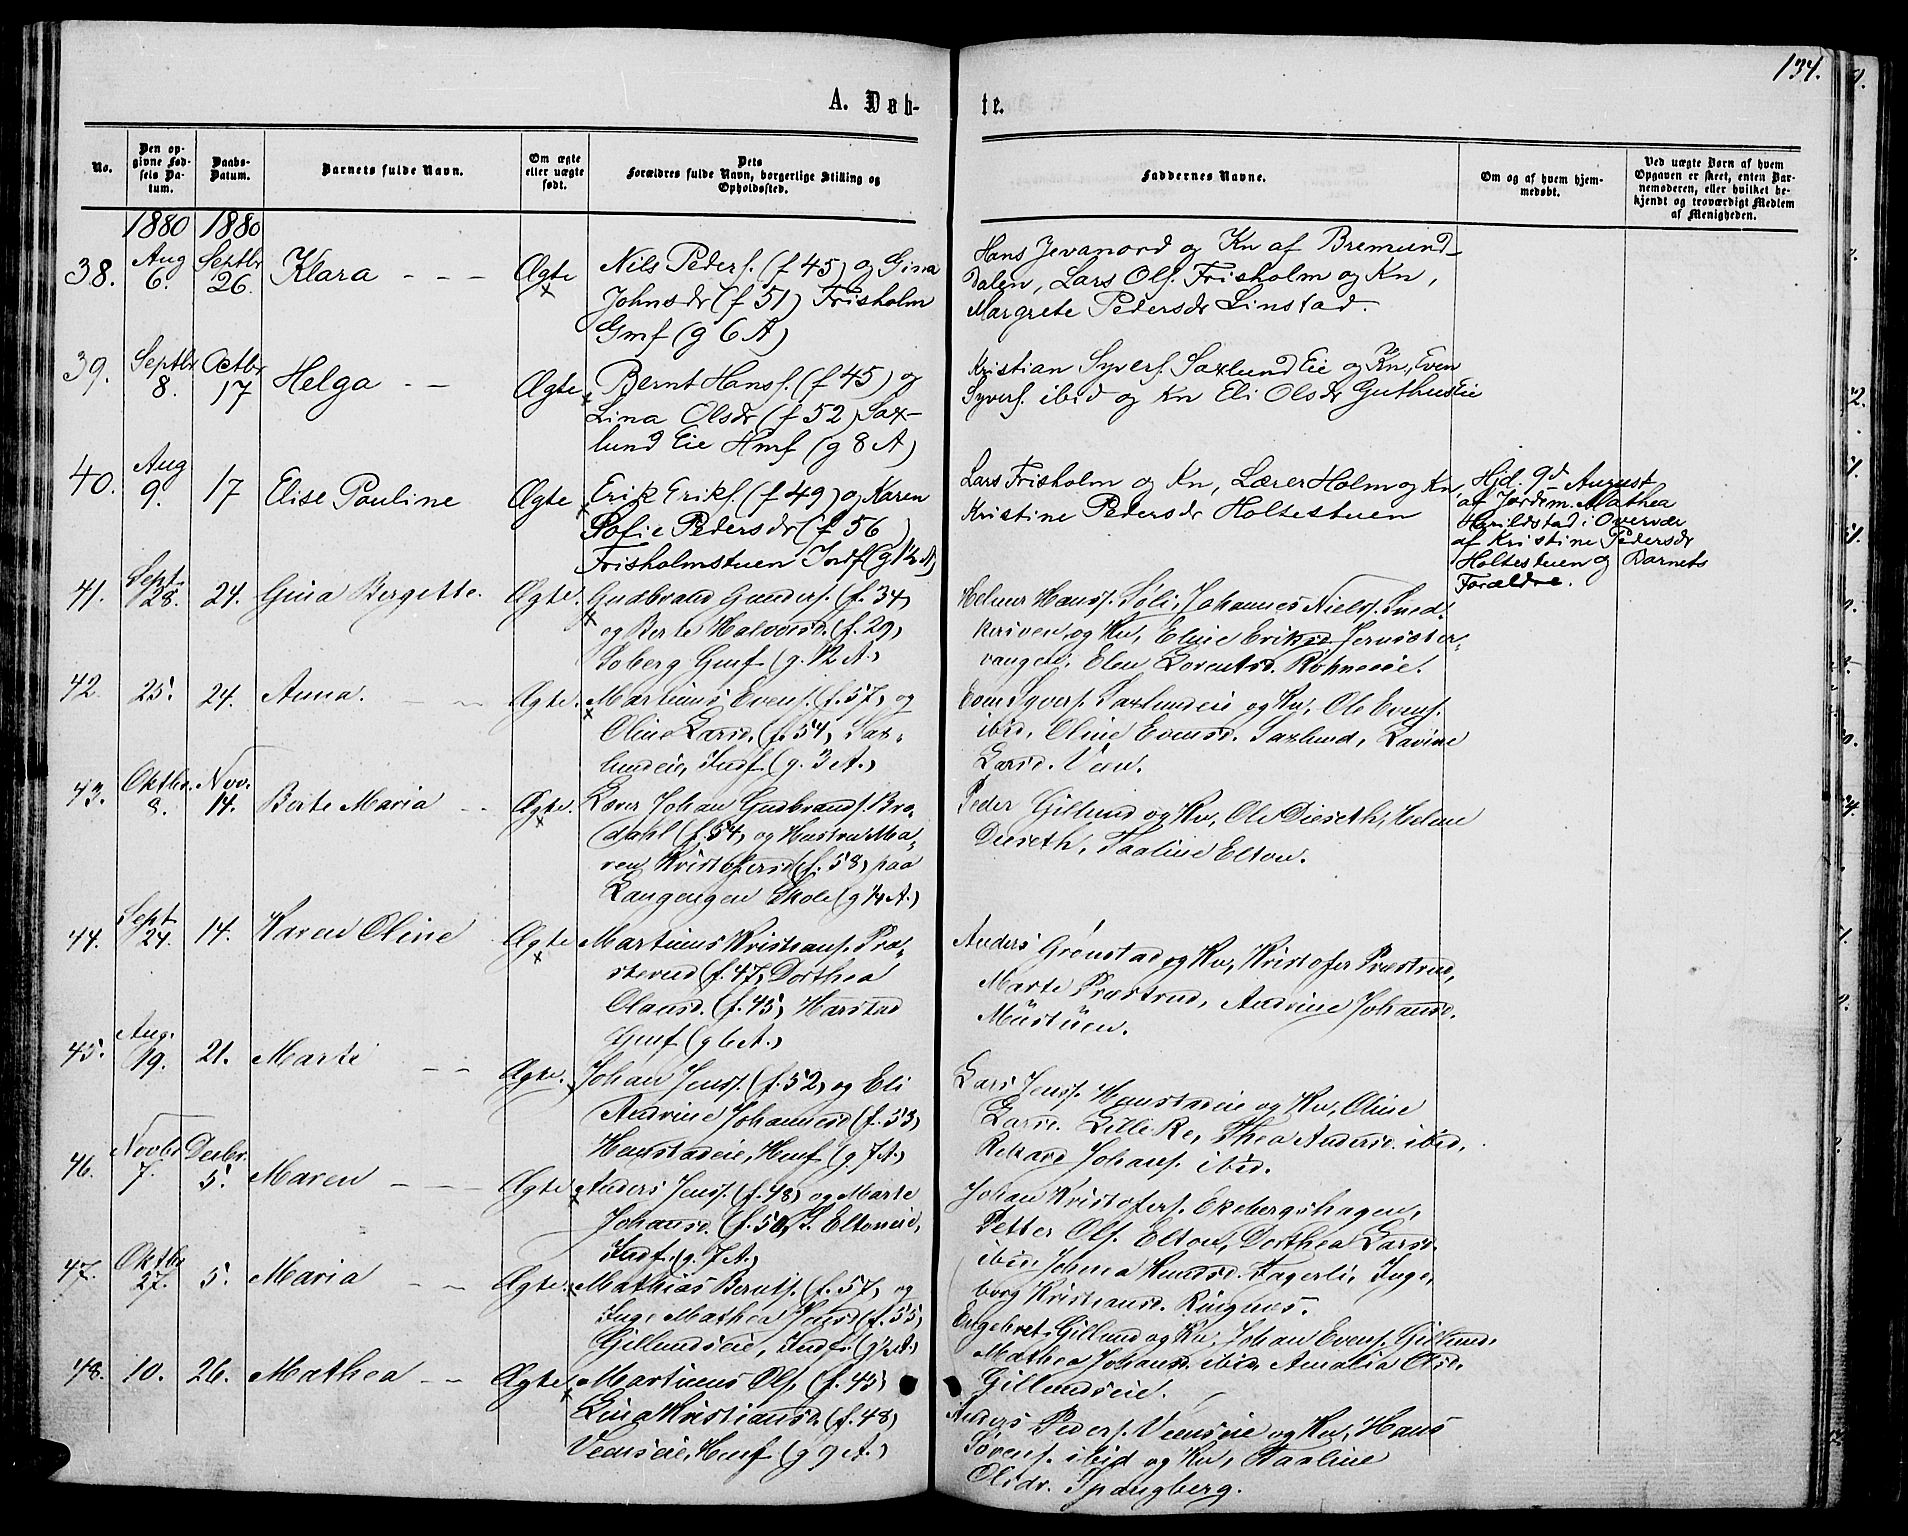 134.
A. Døb-
te.
No.
Den op-
givne Fød-
sels Da-
tum.
Daabs-
Datum.
Barnets fulde Navn.
Om ægte
eller uægte
født.
Dets
Forældres fulde Navn, borgerlige Stilling og
Opholdssted.
Faddernes Navne.
Om og af hvem hjem-
medøbt.
Ved uægte Børn af hvem
Opgaven er skeet, enten Bar-
nemoderen, eller hvilket be-
kjendt og troværdigt Medlem
af Menigheden.
1880 1880
38. Aug 6. Septbr 26. Klara - - - Ægte
Nils Peders. (f 45) og Gina
Johnsdr (f 51) Frisholm
Gmf (g 6 A)
Hans Jevanord og Kn af Bremund-
dalen, Lars Ols. Frisholm og Kn,
Margrete Pedersdr Linstad.
39. Septbr 8. Octbr 17 Helga - - Ægte
Bernt Hans. (f 45) og
Lina Olsdr (f 52) Sax-
lund Eie Hmf (g 8 A)
Kristian Syvers. Saxlund Eie og Kn, Even
Syvers. ibid og Kn Eli Olsdr Guthus Eie
40. Aug 9. 17 Elise Pauline Ægte
Erik Eriks. (f 49) og Karen
Sofie Pedersdr (f 56)
Frisholmstuen Indf (g 1/2 A)
Lars Frisholm og Kn, Lærer Holm og Kn,
Kristine Pedersdr Holtestuen
Hjd. 9d August
af Jordm. Mathea
Harildstad i Overvær
af Kristine Pedersdr
Holtestuen og Barnets
Forældre.
41. Sept. 28. 24. Gina Bergette. Ægte.
Gudbrand Gunders. (f. 34)
og Berte Halvorsd. (f. 29)
Soberg Gmf (g. 12 A.)
Helmer Hanss. Soli, Johannes Niels. Sned-
kersven, og Kv, Eline Eriksd. Jernsæter-
vangen, Elen Lorentsd. Rohneeie.
42. 25. 24. Anna. - - Ægte.
Martinus Evens. (f. 57) og
Oline Larsd. (f. 54) Sax-
lundeie, Indf. (g. 3 A.)
Even Syvers. Saxlundeie og Kv, Ole Evens.
ibid, Oline Evensd. Saxlund, Lavine
Larsd. Veen.
43. Oktbr. 8. Nov. 14. Berte Maria - - Ægte.
Lærer Johan Gudbrands. Bro-
dahl (f. 54) og Hustru Ma-
ren Kristofersd (f. 58) paa
Langengen Skole (g 1/2 A.)
Peder Gillund og Kv, Ole Dieseth, Helene
Dieseth, Paaline Elton.
44. Sept. 24. 14. Karen Oline Ægte
Martinus Kristians. Præ-
sterud (f. 47) Dorthea
Olausd. (f. 45) Harstad
Gmf (g 6 A.)
Anders Grønstad og Kv, Kristofer Præstrud,
Marte Præstrud, Andrine Johansd.
Mustuen.
45. Aug. 19. 21. Marte - - Ægte.
Johan Jens. (f. 52) og Eli
Andrine Johannesd (f. 53)
Honstadeie, Hmf (g. 7 A.)
Lars Jens. Honstadeie og Kv, Oline
Larsd. Lille Re, Thea Andersd. ibid,
Rikard Johans. ibid.
46. Novbr 7. Decbr. 5. Maren - - - Ægte
Anders Jens. (f. 48) og Marte
Johansd. (f. 50) S. Eltoneie,
Indf. (g. 7 A.)
Johan Kristofers. Ekebergshagen,
Petter Ols. Elton, Dorthea Larsd.
ibid, Johna Knudsd. Fagerli, Inge-
borg Kristiansd. Ringnes.
47. Oktbr 27. 5. Maria - - Ægte.
Mathias Bernts. (f. 57) og
Inge Mathea Jensd (f. 55)
Gillundseie, Indf. (g 1/2 A.)
Engebret Gillund og Kv, Johan Evens. Gillund,
Mathea Johansd. ibid, Amalia Olsd.
Gillundseie.
48. 10. 26. Mathea - - Ægte.
Martinus Ols. (f. 45)
Lina Kristiansd. (f. 48)
Veenseie, Hmf (g 9 A.)
Anders Peders. Veenseie og Kv, Hans
Sørens. ibid og Kv, Paaline
Olsdr. Spangberg.